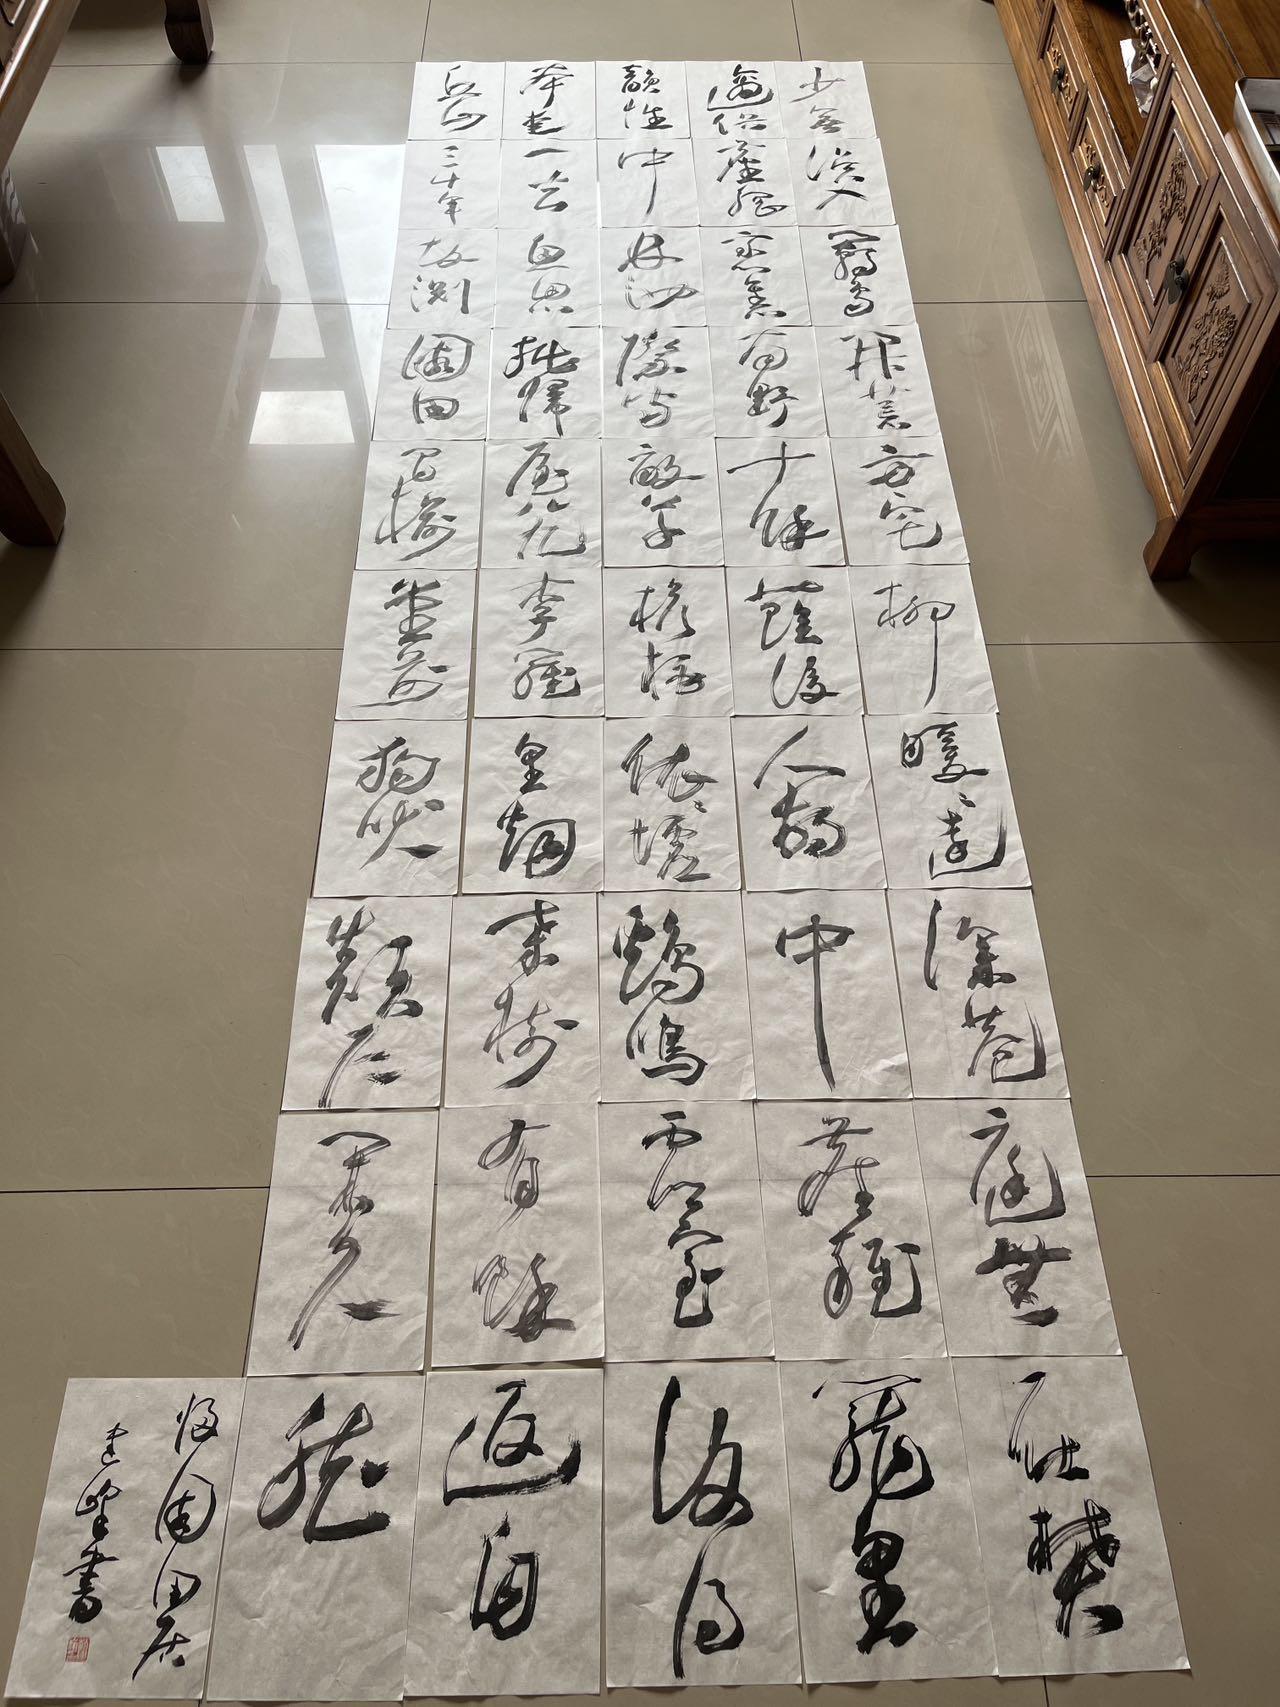 少無適俗韻性本愛丘山
誤入塵網中一去三十年
羈鳥戀舊林池魚思故淵
開荒南野際守拙歸園田
方宅十餘畝草屋八九間榆
柳蔭後檐桃李羅堂前
曖〻遠人村依〻墟里煙狗吠
深巷中雞鳴桑樹顛户
庭無塵雜虛室有餘閒久
在樊籠里復得返自然
歸園田居
建峰書